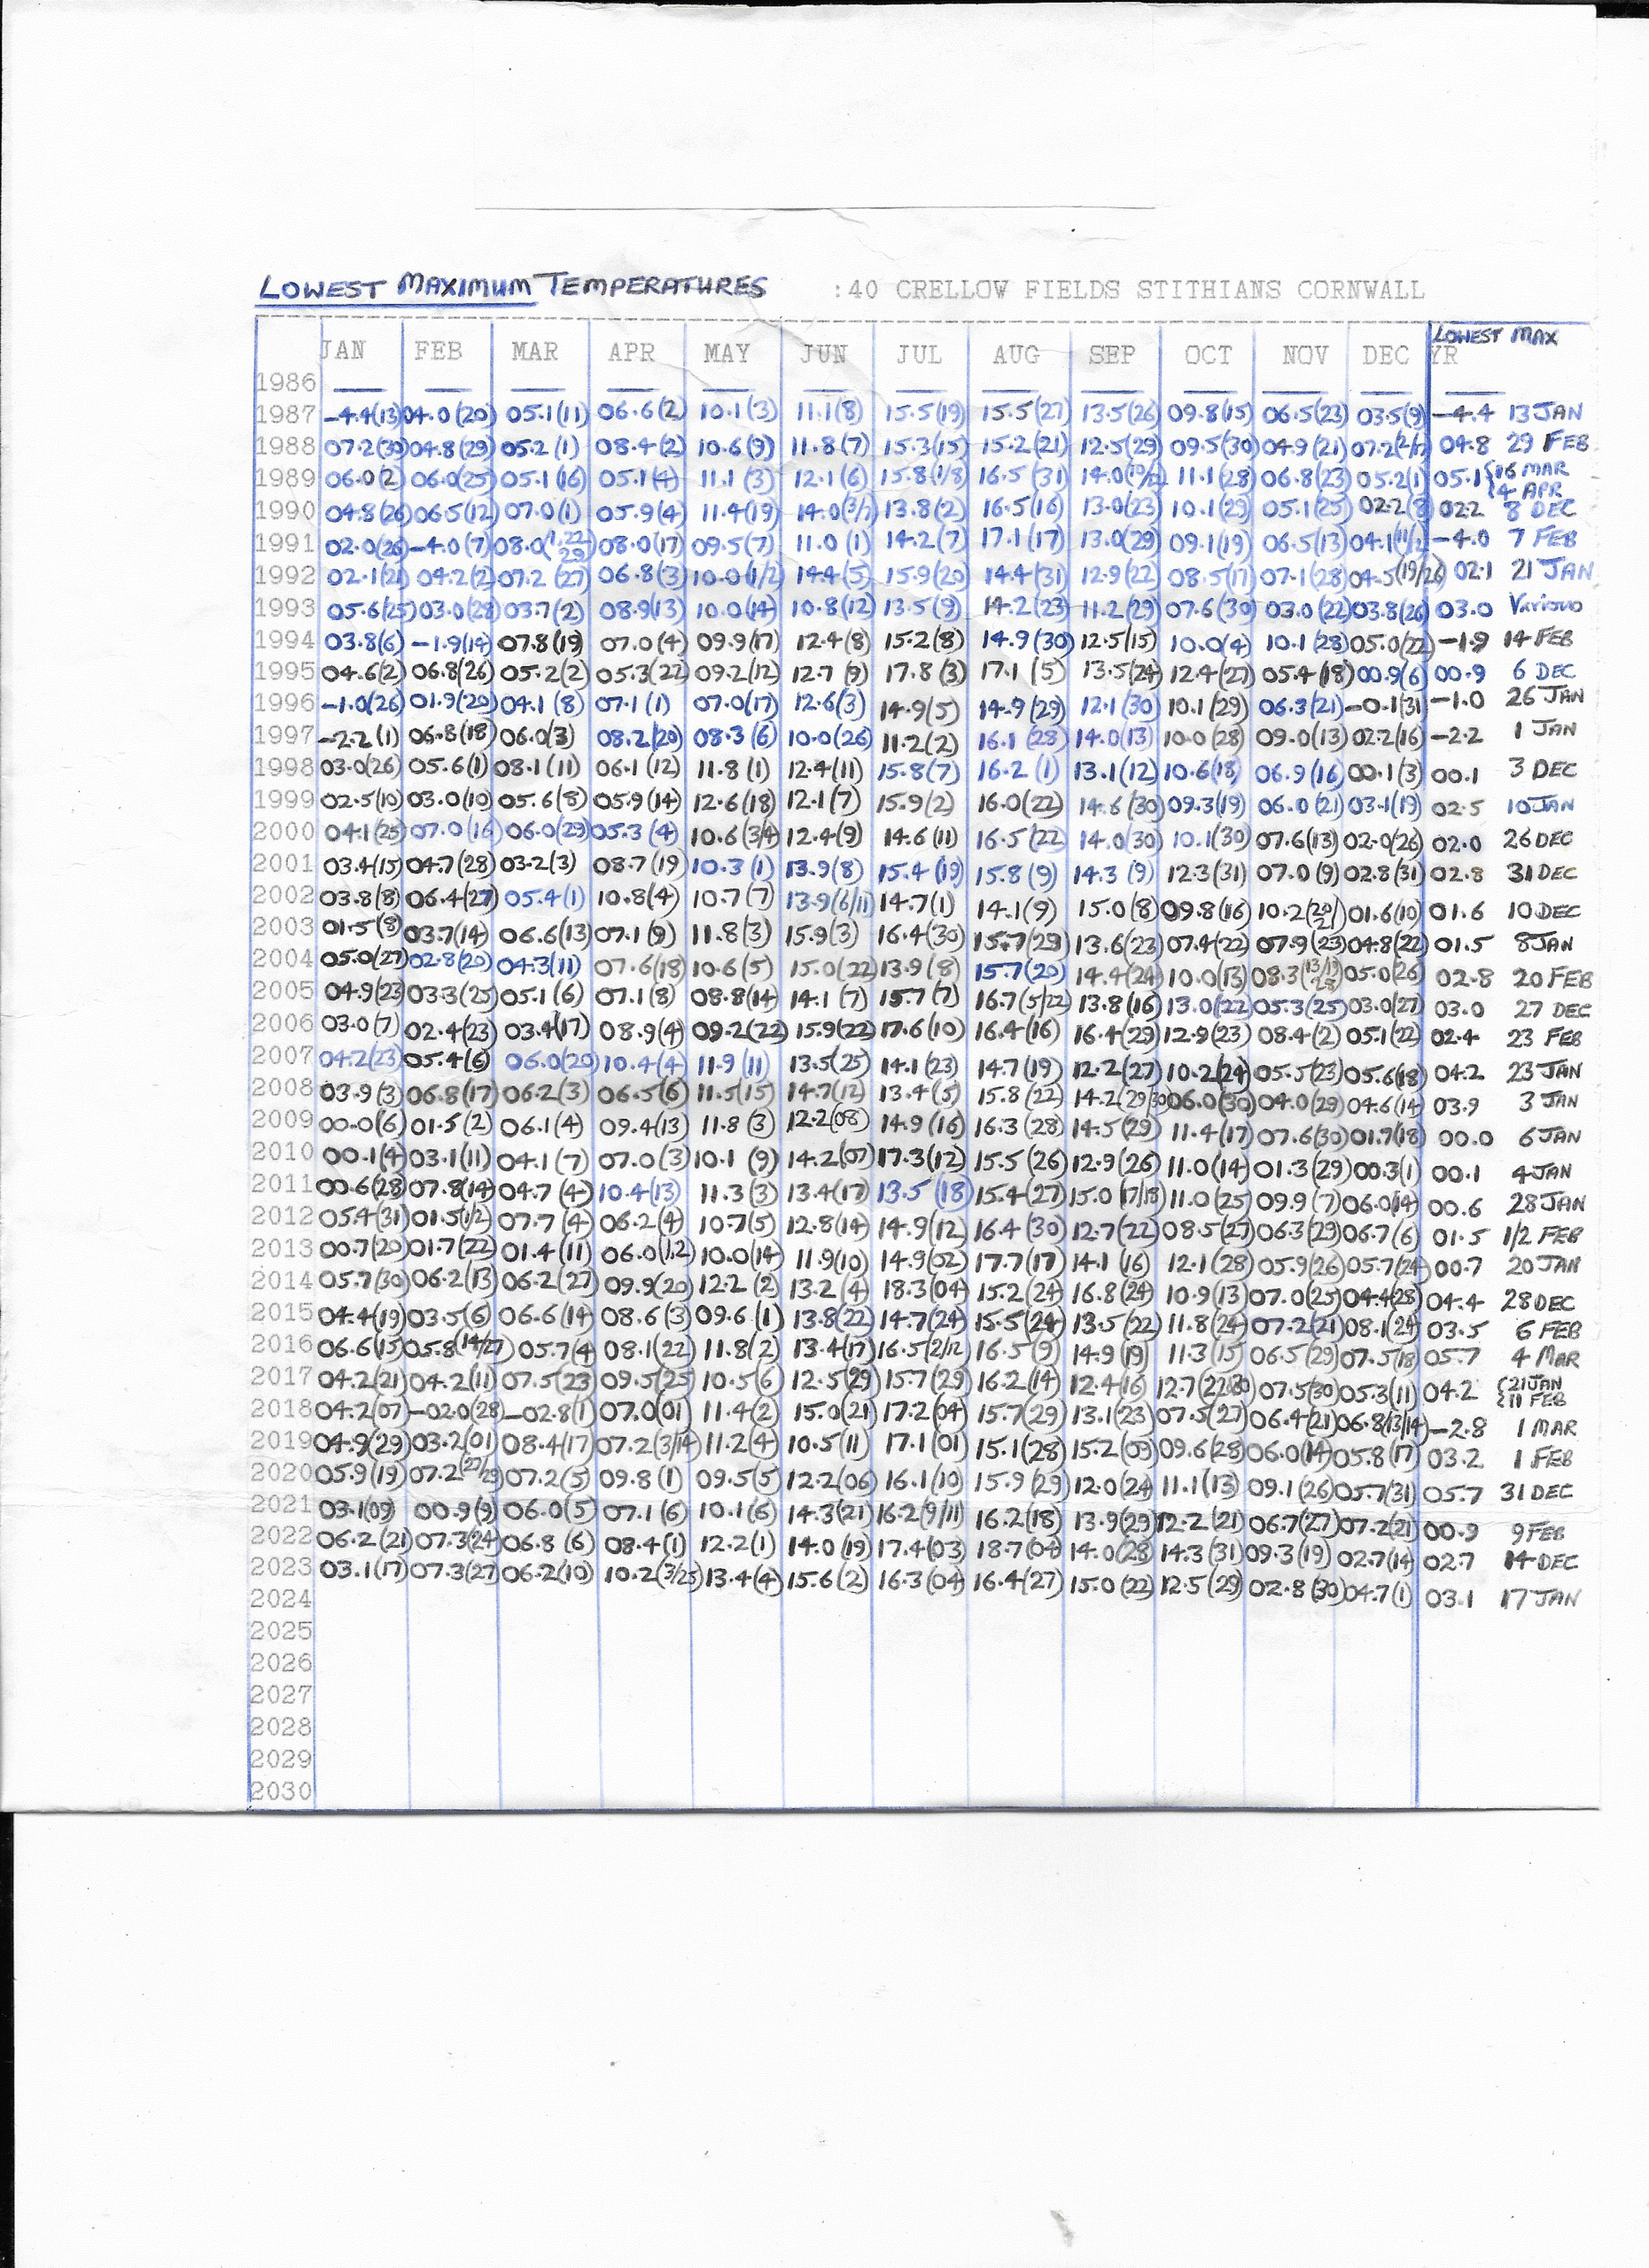 LOWEST MAXIMUM TEMPERATURES :40 CRELLOW FIELDS STITHIANS CORNWALL
JAN FEB MAR APR MAY JUN JUL AUG SEP OCT NOV DEC YR LOWEST MAX
1986 — — — — — — — — — — — — —
1987 -4.4(13) 04.0(20) 05.1(11) 06.6(2) 10.1(3) 11.1(8) 15.5(19) 15.5(27) 13.5(26) 09.8(15) 06.5(23) 03.5(9) -4.4 13 JAN
1988 07.2(30) 04.8(29) 05.2(1) 08.4(2) 10.6(9) 11.8(7) 15.3(15) 15.2(21) 12.5(29) 09.5(30) 04.9(21) 07.2 04.8 29 FEB
1989 06.0(2) 06.0(25) 05.1(16) 05.1(4) 11.1(3) 12.1(6) 15.8(1/8) 16.5(31) 14.0 11.1(28) 06.8(23) 05.2(1) 05.1 {16 MAR {4 APR
1990 04.8(26) 06.5(12) 07.0(1) 05.9(4) 11.4(19) 14.0(3/7) 13.8(2) 16.5(16) 13.0(23) 10.1(29) 05.1(25) 02.2(8) 02.2 8 DEC
1991 02.0(26) -4.0(7) 08.0(1,22/29) 08.0(17) 09.5(7) 11.0(1) 14.2(7) 17.1(17) 13.0(29) 09.1(19) 06.5(13) 04.1 -4.0 7 FEB
1992 02.1(21) 04.2(2) 07.2(27) 06.8(3) 10.0(1/2) 14.4(5) 15.9(20) 14.4(31) 12.9(22) 08.5(17) 07.1(28) 04.5(19/26) 02.1 21 JAN
1993 05.6(25) 03.0(28) 03.7(2) 08.9(13) 10.0(14) 10.8(12) 13.5(9) 14.2(23) 11.2(29) 07.6(30) 03.0(22) 03.8(26) 03.0 Various
1994 03.8(6) -1.9(14) 07.8(19) 07.0(4) 09.9(17) 12.4(8) 15.2(8) 14.9(30) 12.5(15) 10.0(4) 10.1(28) 05.0(22) -1.9 14 FEB
1995 04.6(2) 06.8(26) 05.2(2) 05.3(22) 09.2(12) 12.7(9) 17.8(3) 17.1(5) 13.5(24) 12.4(27) 05.4(18) 00.9(6) 00.9 6 DEC
1996 -1.0(26) 01.9(20) 04.1(8) 07.1(1) 07.0(17) 12.6(3) 14.9(5) 14.9(29) 12.1(30) 10.1(29) 06.3(21) -0.1(31) -1.0 26 JAN
1997 -2.2(1) 06.8(18) 06.0(3) 08.2(20) 08.3(6) 10.0(26) 11.2(2) 16.1(28) 14.0(13) 10.0(28) 09.0(13) 02.2(16) -2.2 1 JAN
1998 03.0(26) 05.6(1) 08.1(11) 06.1(12) 11.8(1) 12.4(11) 15.8(7) 16.2(1) 13.1(12) 10.6(18) 06.9(16) 00.1(3) 00.1 3 DEC
1999 02.5(10) 03.0(10) 05.6(8) 05.9(14) 12.6(18) 12.1(7) 15.9(2) 16.0(22) 14.6(30) 09.3(19) 06.0(21) 03.1(19) 02.5 10 JAN
2000 04.1(25) 07.0(16) 06.0(29) 05.3(4) 10.6(3/4) 12.4(9) 14.6(11) 16.5(22) 14.0(30) 10.1(30) 07.6(13) 02.0(26) 02.0 26 DEC
2001 03.4(15) 04.7(28) 03.2(3) 08.7(19) 10.3(1) 13.9(8) 15.4(19) 15.8(9) 14.3(9) 12.3(31) 07.0(9) 02.8(31) 02.8 31 DEC
2002 03.8(8) 06.4(27) 05.4(1) 10.8(4) 10.7(7) 13.9(6/11) 14.7(1) 14.1(9) 15.0(8) 09.8(16) 10.2(20/21) 01.6(10) 01.6 10 DEC
2003 01.5(8) 03.7(14) 06.6(13) 07.1(9) 11.8(3) 15.9(3) 16.4(30) 15.7(29) 13.6(23) 07.4(22) 07.9(23) 04.8(22) 01.5 8 JAN
2004 05.0(27) 02.8(20) 04.3(11) 07.6(18) 10.6(5) 15.0(22) 13.9(8) 15.7(20) 14.4(24) 10.0(13) 08.3 05.0(26) 02.8 20 FEB
2005 04.9(23) 03.3(25) 05.1(6) 07.1(8) 08.8(14) 14.1(7) 15.7(7) 16.7(5/22) 13.8(16) 13.0(22) 05.3(25) 03.0(27) 03.0 27 DEC
2006 03.0(7) 02.4(23) 03.4(17) 08.9(4) 09.2(22) 15.9(22) 17.6(10) 16.4(16) 16.4(29) 12.9(23) 08.4(2) 05.1(22) 02.4 23 FEB
2007 04.2(23) 05.4(6) 06.0(20) 10.4(4) 11.9(11) 13.5(25) 14.1(23) 14.7(19) 12.2(27) 10.2(24) 05.5(23) 05.6(18) 04.2 23 JAN
2008 03.9(3) 06.8(17) 06.2(3) 06.5(6) 11.5(15) 14.7(12) 13.4(5) 15.8(22) 14.2(29/30) 06.0(30) 04.0(29) 04.6(14) 03.9 3 JAN
2009 00.0(6) 01.5(2) 06.1(4) 09.4(13) 11.8(3) 12.2(08) 14.9(16) 16.3(28) 14.5(29) 11.4(17) 07.6(30) 01.7(18) 00.0 6 JAN
2010 00.1(4) 03.1(11) 04.1(7) 07.0(3) 10.1(9) 14.2(07) 17.3(12) 15.5(26) 12.9(26) 11.0(14) 01.3(29) 00.3(1) 00.1 4 JAN
2011 00.6(28) 07.8(14) 04.7(4) 10.4(13) 11.3(3) 13.4(17) 13.5(18) 15.4(27) 15.0(17/18) 11.0(25) 09.9(7) 06.0(14) 00.6 28 JAN
2012 05.4(31) 01.5(1/2) 07.7(4) 06.2(4) 10.7(5) 12.8(14) 14.9(12) 16.4(30) 12.7(22) 08.5(27) 06.3(29) 06.7(6) 01.5 1/2 FEB
2013 00.7(20) 01.7(22) 01.4(11) 06.0(1,2) 10.0(14) 11.9(10) 14.9(02) 17.7(17) 14.1(16) 12.1(28) 05.9(26) 05.7(24) 00.7 20 JAN
2014 05.7(30) 06.2(13) 06.2(27) 09.9(20) 12.2(2) 13.2(4) 18.3(04) 15.2(24) 16.8(24) 10.9(13) 07.0(25) 04.4(28) 04.4 28 DEC
2015 04.4(19) 03.5(6) 06.6(14) 08.6(3) 09.6(1) 13.8(22) 14.7(24) 15.5(24) 13.5(22) 11.8(24) 07.2(21) 08.1(24) 03.5 6 FEB
2016 06.6(15) 05.8(14/27) 05.7(4 08.1(22) 11.8(2) 13.4(17) 16.5(2/12) 16.5(9) 14.9(19) 11.3(15 06.5(29) 07.5(18) 05.7 4 MAR
2017 04.2(21) 04.2(11) 07.5(23 09.5(25) 10.5(6 12.5(29) 15.7(29) 16.2(14) 12.4(16) 12.7 07.5(30) 05.3(11) 04.2 {21 JAN {11 FEB
2018 04.2(07) -02.0(28) -02.8(1) 07.0(01) 11.4(2) 15.0(21) 17.2(04) 15.7(29) 13.1(23) 07.5(27) 06.4(21) 06.8(13/14) -2.8 1 MAR
2019 04.9(29) 03.2(01) 08.4(17) 07.2(3/14) 11.2(4) 10.5(11) 17.1(01) 15.1(28) 15.2(09) 09.6(28) 06.0(14) 05.8(17) 03.2 1 FEB
2020 05.9(19) 07.2(27/29) 07.2(5) 09.8(1) 09.5(5 12.2(06) 16.1(10) 15.9(29) 12.0(24) 11.1(13) 09.1(26) 05.7(31) 05.7 31 DEC
2021 03.1(09) 00.9(9) 06.0(5) 07.1(6) 10.1(6) 14.3(21) 16.2(9/11) 16.2(18) 13.9(29) 12.2(21) 06.7(27) 07.2(21) 00.9 9 FEB
2022 06.2(21) 07.3(24) 06.8(6) 08.4(1) 12.2(1) 14.0(19) 17.4(03) 18.7(04) 14.0(28) 14.3(31) 09.3(19) 02.7(14) 02.7 14 DEC
2023 03.1(17) 07.3(27) 06.2(10) 10.2(3/25) 13.4(4) 15.6(2) 16.3(04) 16.4(27) 15.0(22) 12.5(29) 02.8(30) 04.7(1) 03.1 17 JAN
2024
2025
2026
2027
2028
2029
2030